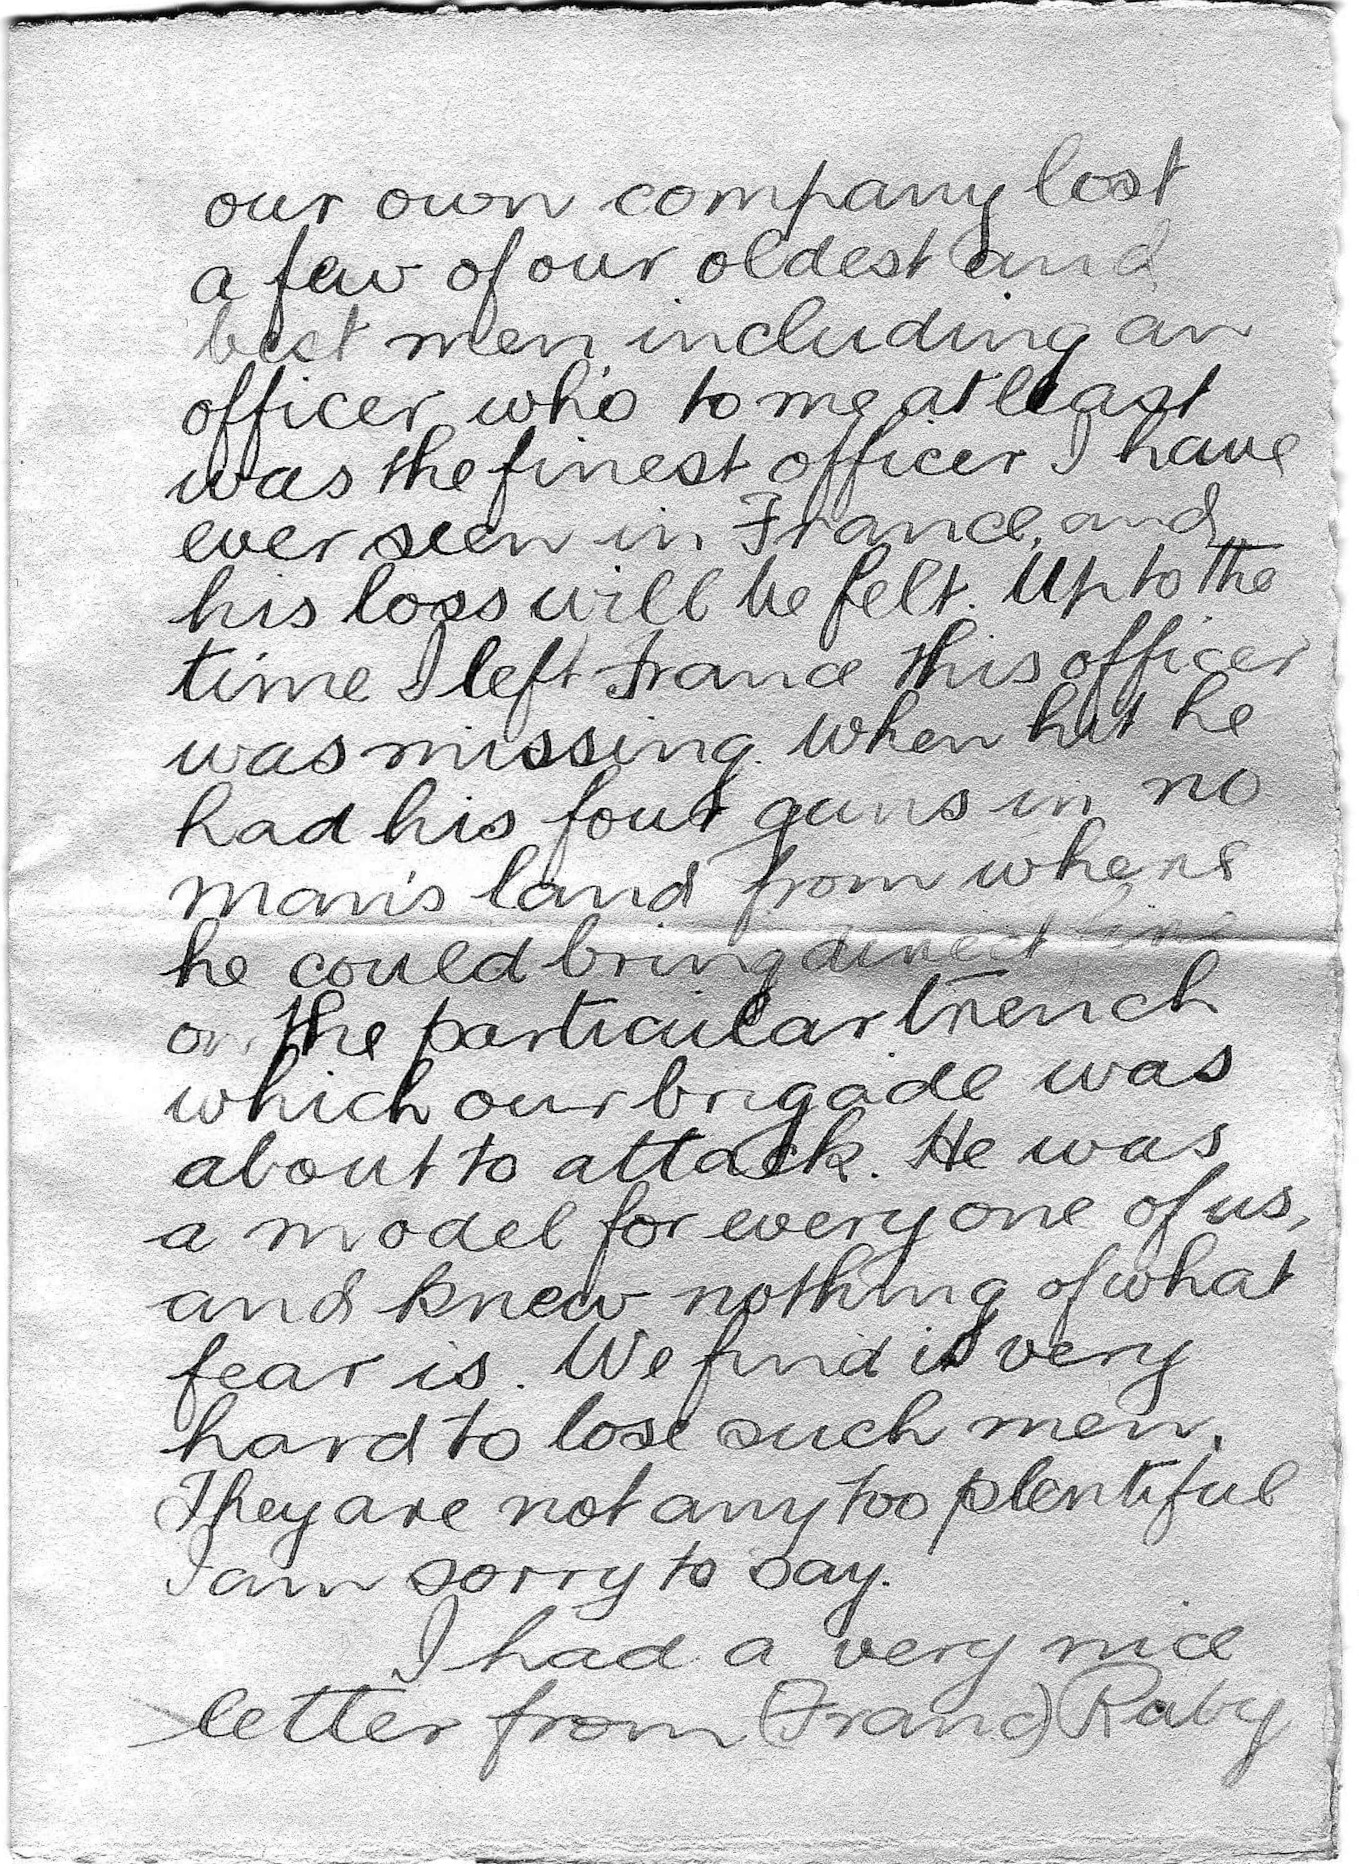 our own company lost
a few of our oldest and
best men including an
officer who to me at least
was the finest officer I have
ever seen in France, and
his loss will be felt. Up to the
time I left France this officer
was missing. When hit he
had his four guns in no
man's land from where
he could bring direct fire
on the particular trench
which our brigade was
about to attack. He was
a model for every one of us,
and knew nothing of what
fear is. We find it very
hard to lose such men.
They are not any too plentiful
I am sorry to say.
I had a very nice
letter from (Franc) Ruby